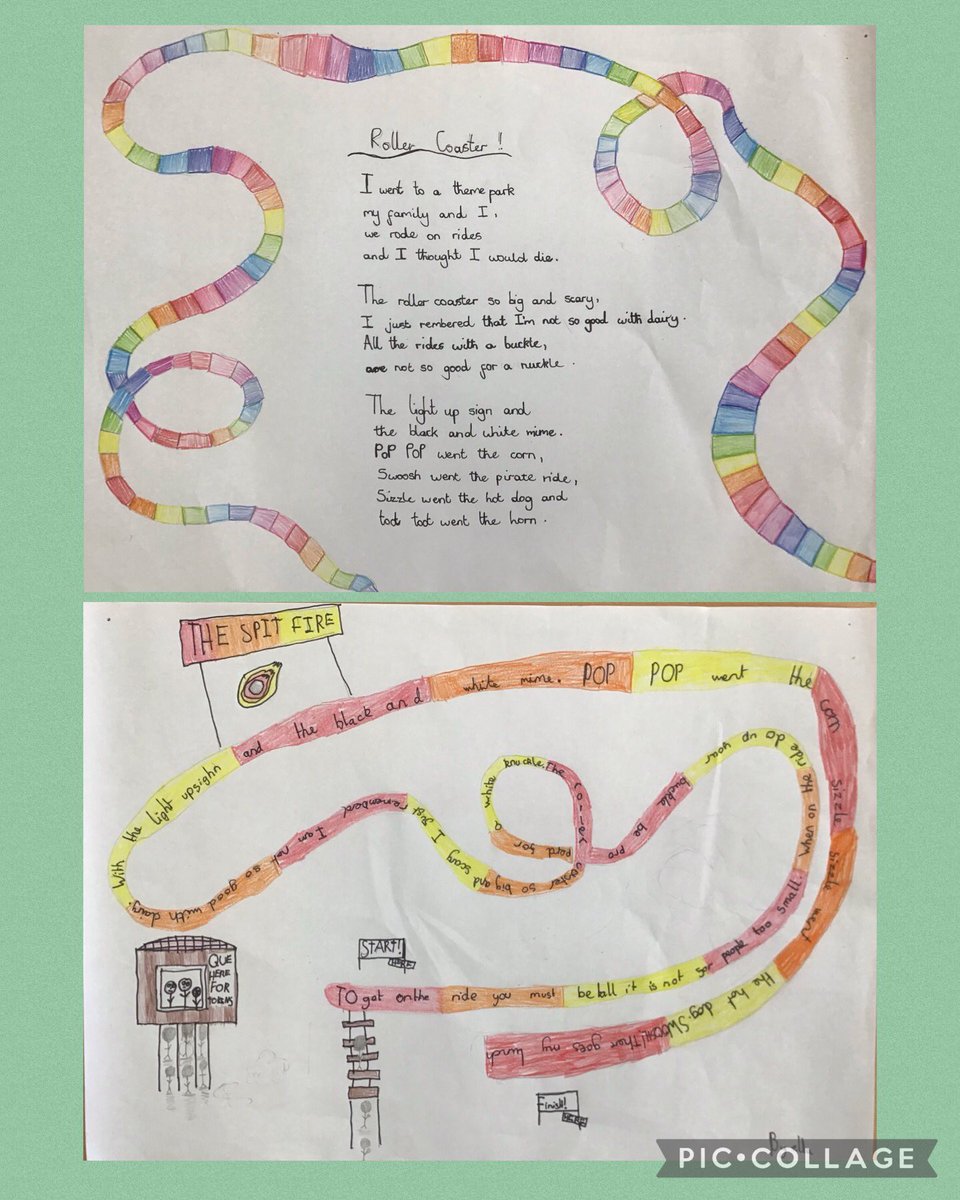 Roller Coaster !!
I went to a theme park
my family and I,
we rode on rides
and I thought I would die.
The roller coaster so big and scary,
I just rembered that I'm not so good with dairy.
All the rides with a buckle,
are not so good for a nuckle.
The light up sign and
the black and white mime.
POP POP went the corn,
Swoosh went the pirate ride,
Sizzle went the hot dog and
toot toot went the horn.
THE SPIT FIRE
QUE
HERE
FOR
TOKENS
START!
HERE
TO get on the ride you must be tall it is not for people too small. When on the ride do up your buckle be pre pard for a white knuckle. The coster so big and scary I just remembered I am not so good with dairy. With the light upsighn and the black and white mime. POP POP went the corn sizzle sizzle went the hot dog. SWOOSH! Ther goes my lunch
Finish!
HERE
PIC•COLLAGE